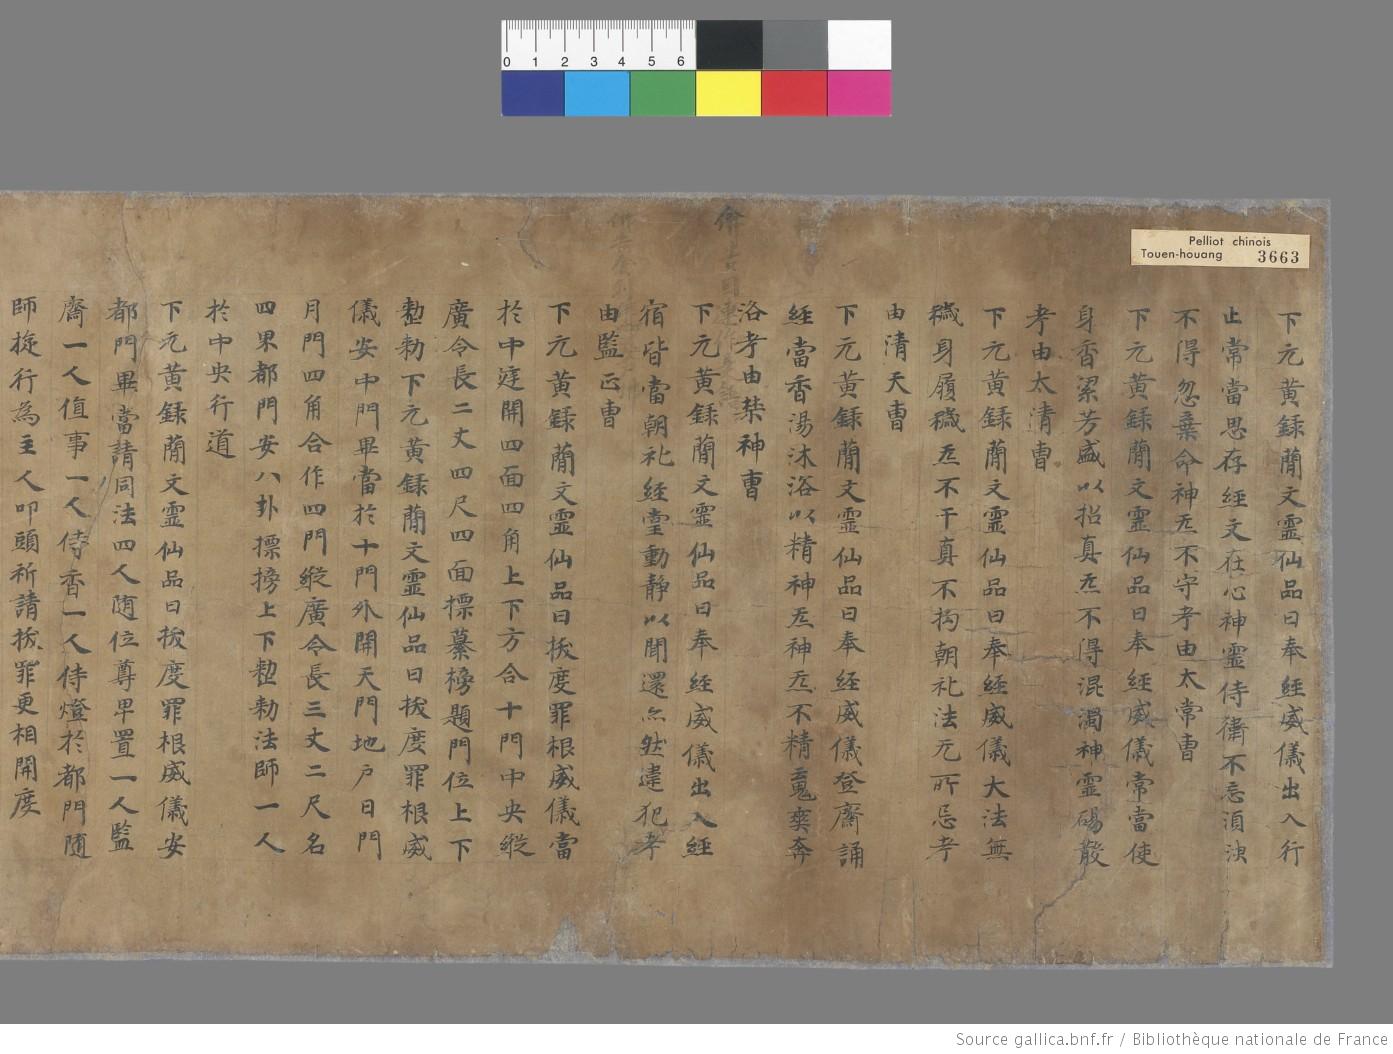 Pelliot chinois
Touen-houang 3663
0 1 2 3 4 5 6
下元黃籙蕑文靈仙品曰奉經威儀出入行
止常當思存經文在心神靈侍衛不忘須洩
不得忽棄命神炁不守考由太常曹
下元黃籙蕑文靈仙品曰奉經威儀常當使
身香潔芳盛以招真炁不得混濁神靈碭散
考由太清曹
下元黃籙蕑文靈仙品曰奉經威儀大法無
穢身履穢炁不干真不拘朝礼法元所忌考
由清天曹
下元黃籙蕑文靈仙品曰奉經威儀登齋誦
經當香湯沐浴以精神炁神炁不精䰟爽奔
洛考由禁神曹
下元黃籙蕑文靈仙品曰奉經威儀出入經
宿皆當朝礼經堂動靜以聞還亦然違犯考
由監正曹
下元黃籙蕑文靈仙品曰拔度罪根威儀當
於中庭開四面四角上下方合十門中央縱
廣令長二丈四尺四面標纂榜題門位上下
整勑下元黃籙蕑文靈仙品曰拔度罪根威
儀安中門畢當於十門外開天門地戶日門
月門四角合作四門縱廣令長三丈二尺名
四界都門安八卦標榜上下整勑法師一人
於中央行道
下元黃籙蕑文靈仙品曰拔度罪根威儀安
都門畢當請同法四人隨位尊卑置一人監
齋一人值事一人侍香一人侍燈於都門隨
師旋行為主人叩頭祈請拔罪更相開度
Source gallica.bnf.fr / Bibliothèque nationale de France